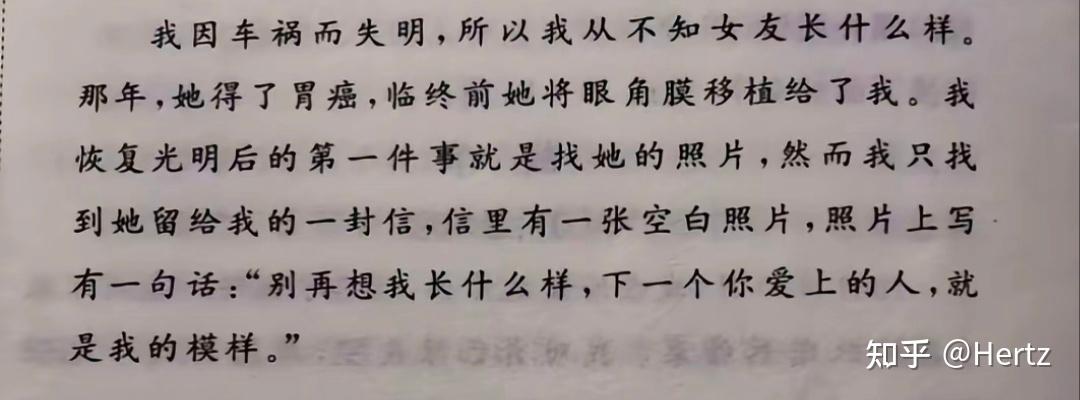 我因车祸而失明，所以我从不知女友长什么样。
那年，她得了胃癌，临终前她将眼角膜移植给了我。我
恢复光明后的第一件事就是找她的照片，然而我只找
到她留给我的一封信，信里有一张空白照片，照片上写
有一句话：“别再想我长什么样，下一个你爱上的人，就
是我的模样。”
知乎 @Hertz